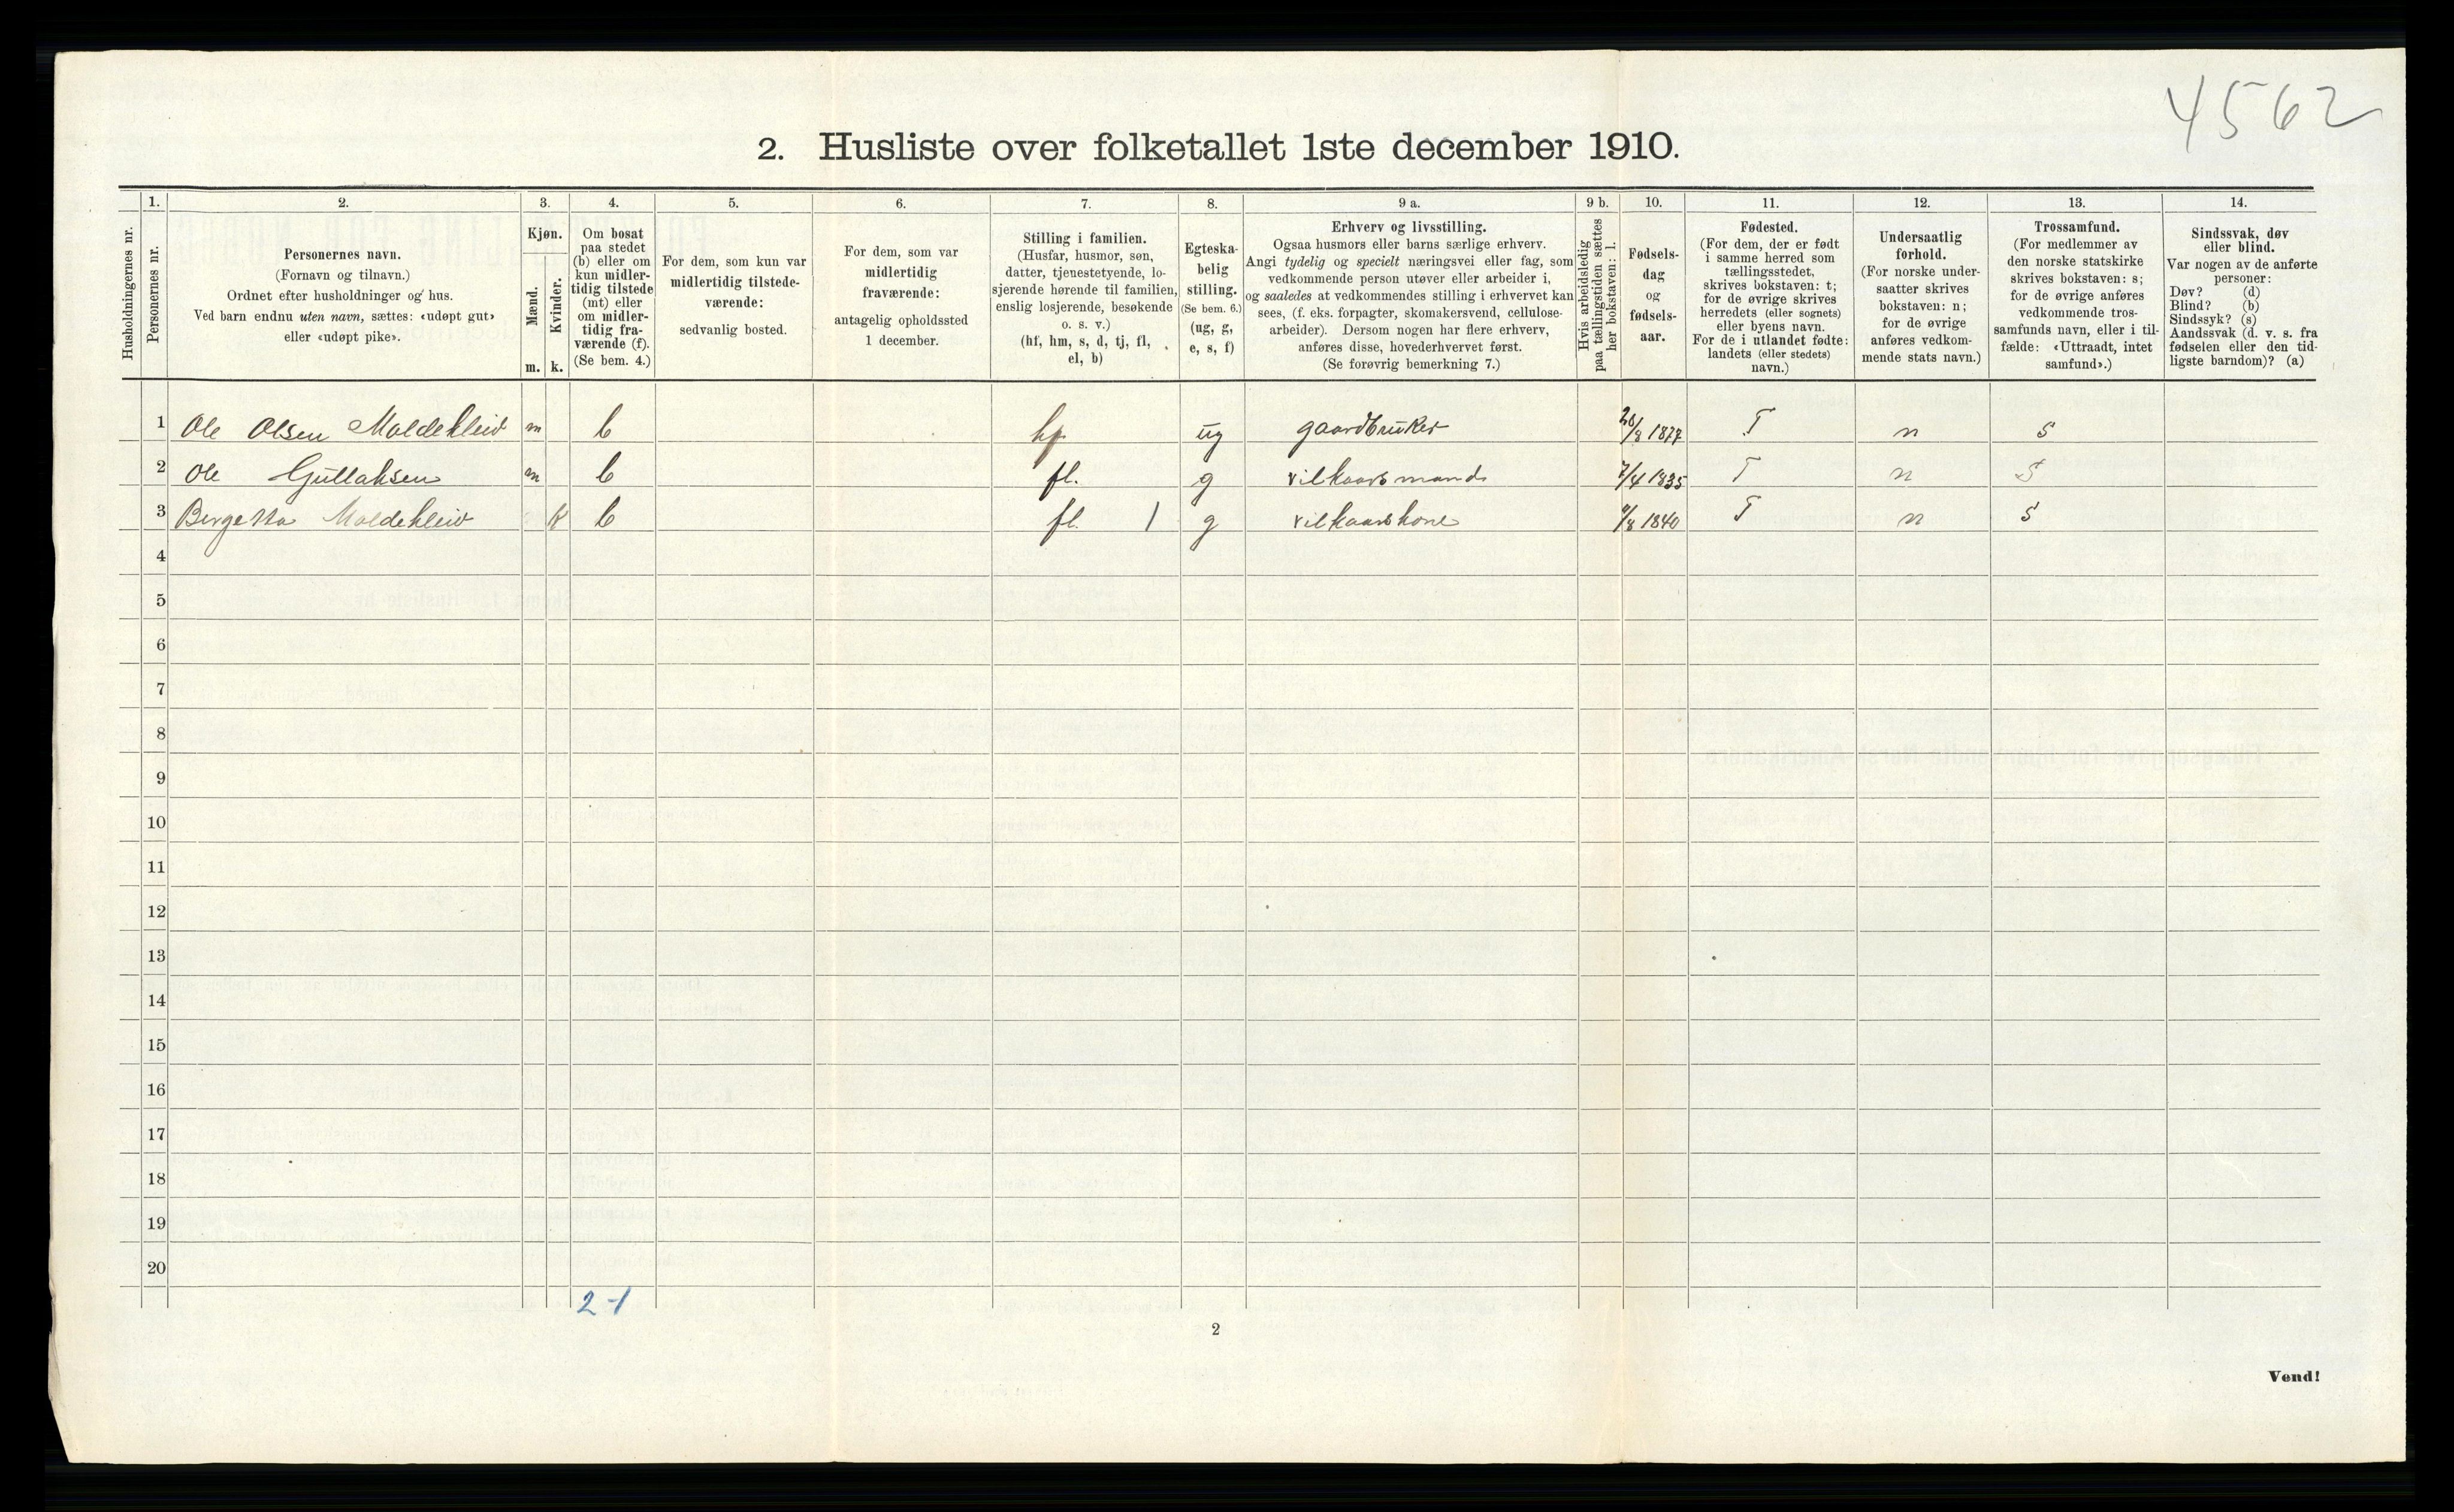 4562
2. Husliste over folketallet 1ste december 1910.
Husholdningernes nr.
1.
Personernes nr.
2.
Personernes navn.
(Fornavn og tilnavn.)
Ordnet efter husholdninger og hus.
Ved barn endnu uten navn, sættes: «udøpt gut»
eller «udøpt pike».
3.
Kjøn.
Mænd.
Kvinder.
m. k.
4.
Om bosat
paa stedet
(b) eller om
kun midler-
tidig tilstede
(mt) eller
om midler-
tidig fra-
værende (f).
(Se bem. 4.)
5.
For dem, som kun var
midlertidig tilstede-
værende:
sedvanlig bosted.
6.
For dem, som var
midlertidig
fraværende:
antagelig opholdssted
1 december.
7.
Stilling i familien.
(Husfar, husmor, søn,
datter, tjenestetyende, lo-
sjerende hørende til familien,
enslig losjerende, besøkende
o. s. v.)
(hf, hm, s, d, tj, fl,
el, b)
8.
Egteska-
belig
stilling.
(Se bem. 6.)
(ug, g,
e, s, f)
9 a.
Erhverv og livsstilling.
Ogsaa husmors eller barns særlige erhverv.
Angi tydelig og specielt næringsvei eller fag, som
vedkommende person utøver eller arbeider i,
og saaledes at vedkommendes stilling i erhvervet kan
sees, (f. eks. forpagter, skomakersvend, cellulose-
arbeider). Dersom nogen har flere erhverv,
anføres disse, hovederhvervet først.
(Se forøvrig bemerkning 7.)
9 b.
Hvis arbeidsledig
paa tællingstiden sættes
her bokstaven: l.
10.
Fødsels-
dag
og
fødsels-
aar.
11.
Fødested.
(For dem, der er født
i samme herred som
tællingsstedet,
skrives bokstaven: t;
for de øvrige skrives
herredets (eller sognets)
eller byens navn.
For de i utlandet fødte:
landets (eller stedets)
navn.)
12.
Undersaatlig
forhold.
(For norske under-
saatter skrives
bokstaven: n;
for de øvrige
anføres vedkom-
mende stats navn.)
13.
Trossamfund.
(For medlemmer av
den norske statskirke
skrives bokstaven: s;
for de øvrige anføres
vedkommende tros-
samfunds navn, eller i til-
fælde: «Uttraadt, intet
samfund».)
14.
Sindssvak, døv
eller blind.
Var nogen av de anførte
personer:
Døv? (d)
Blind? (b)
Sindssyk? (s)
Aandssvak (d. v. s. fra
fødselen eller den tid-
ligste barndom)? (a)
1 Ole Olsen Moldekleiv m b hf ug gaardbruker 28/8 1877 T n S
2 Ole Gullaksen m b fl. g vilkaarsmand 7/4 1835 T n S
3 Moldekleiv K b fl. 1 g vilkaarskone /8 1840 T n S
4
5
6
7
8
9
10
11
12
13
14
15
16
17
18
19
20
2-1
2
Vend!